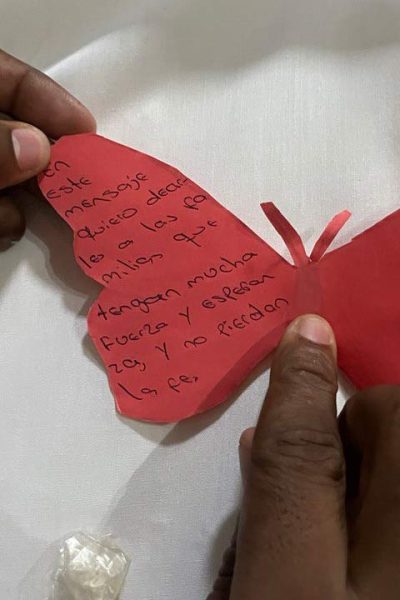 en
este
mensaje
quiero decir
le a las fa
milias que
tengan mucha
fuerza y esperan
za, y no pierdan
la fe,